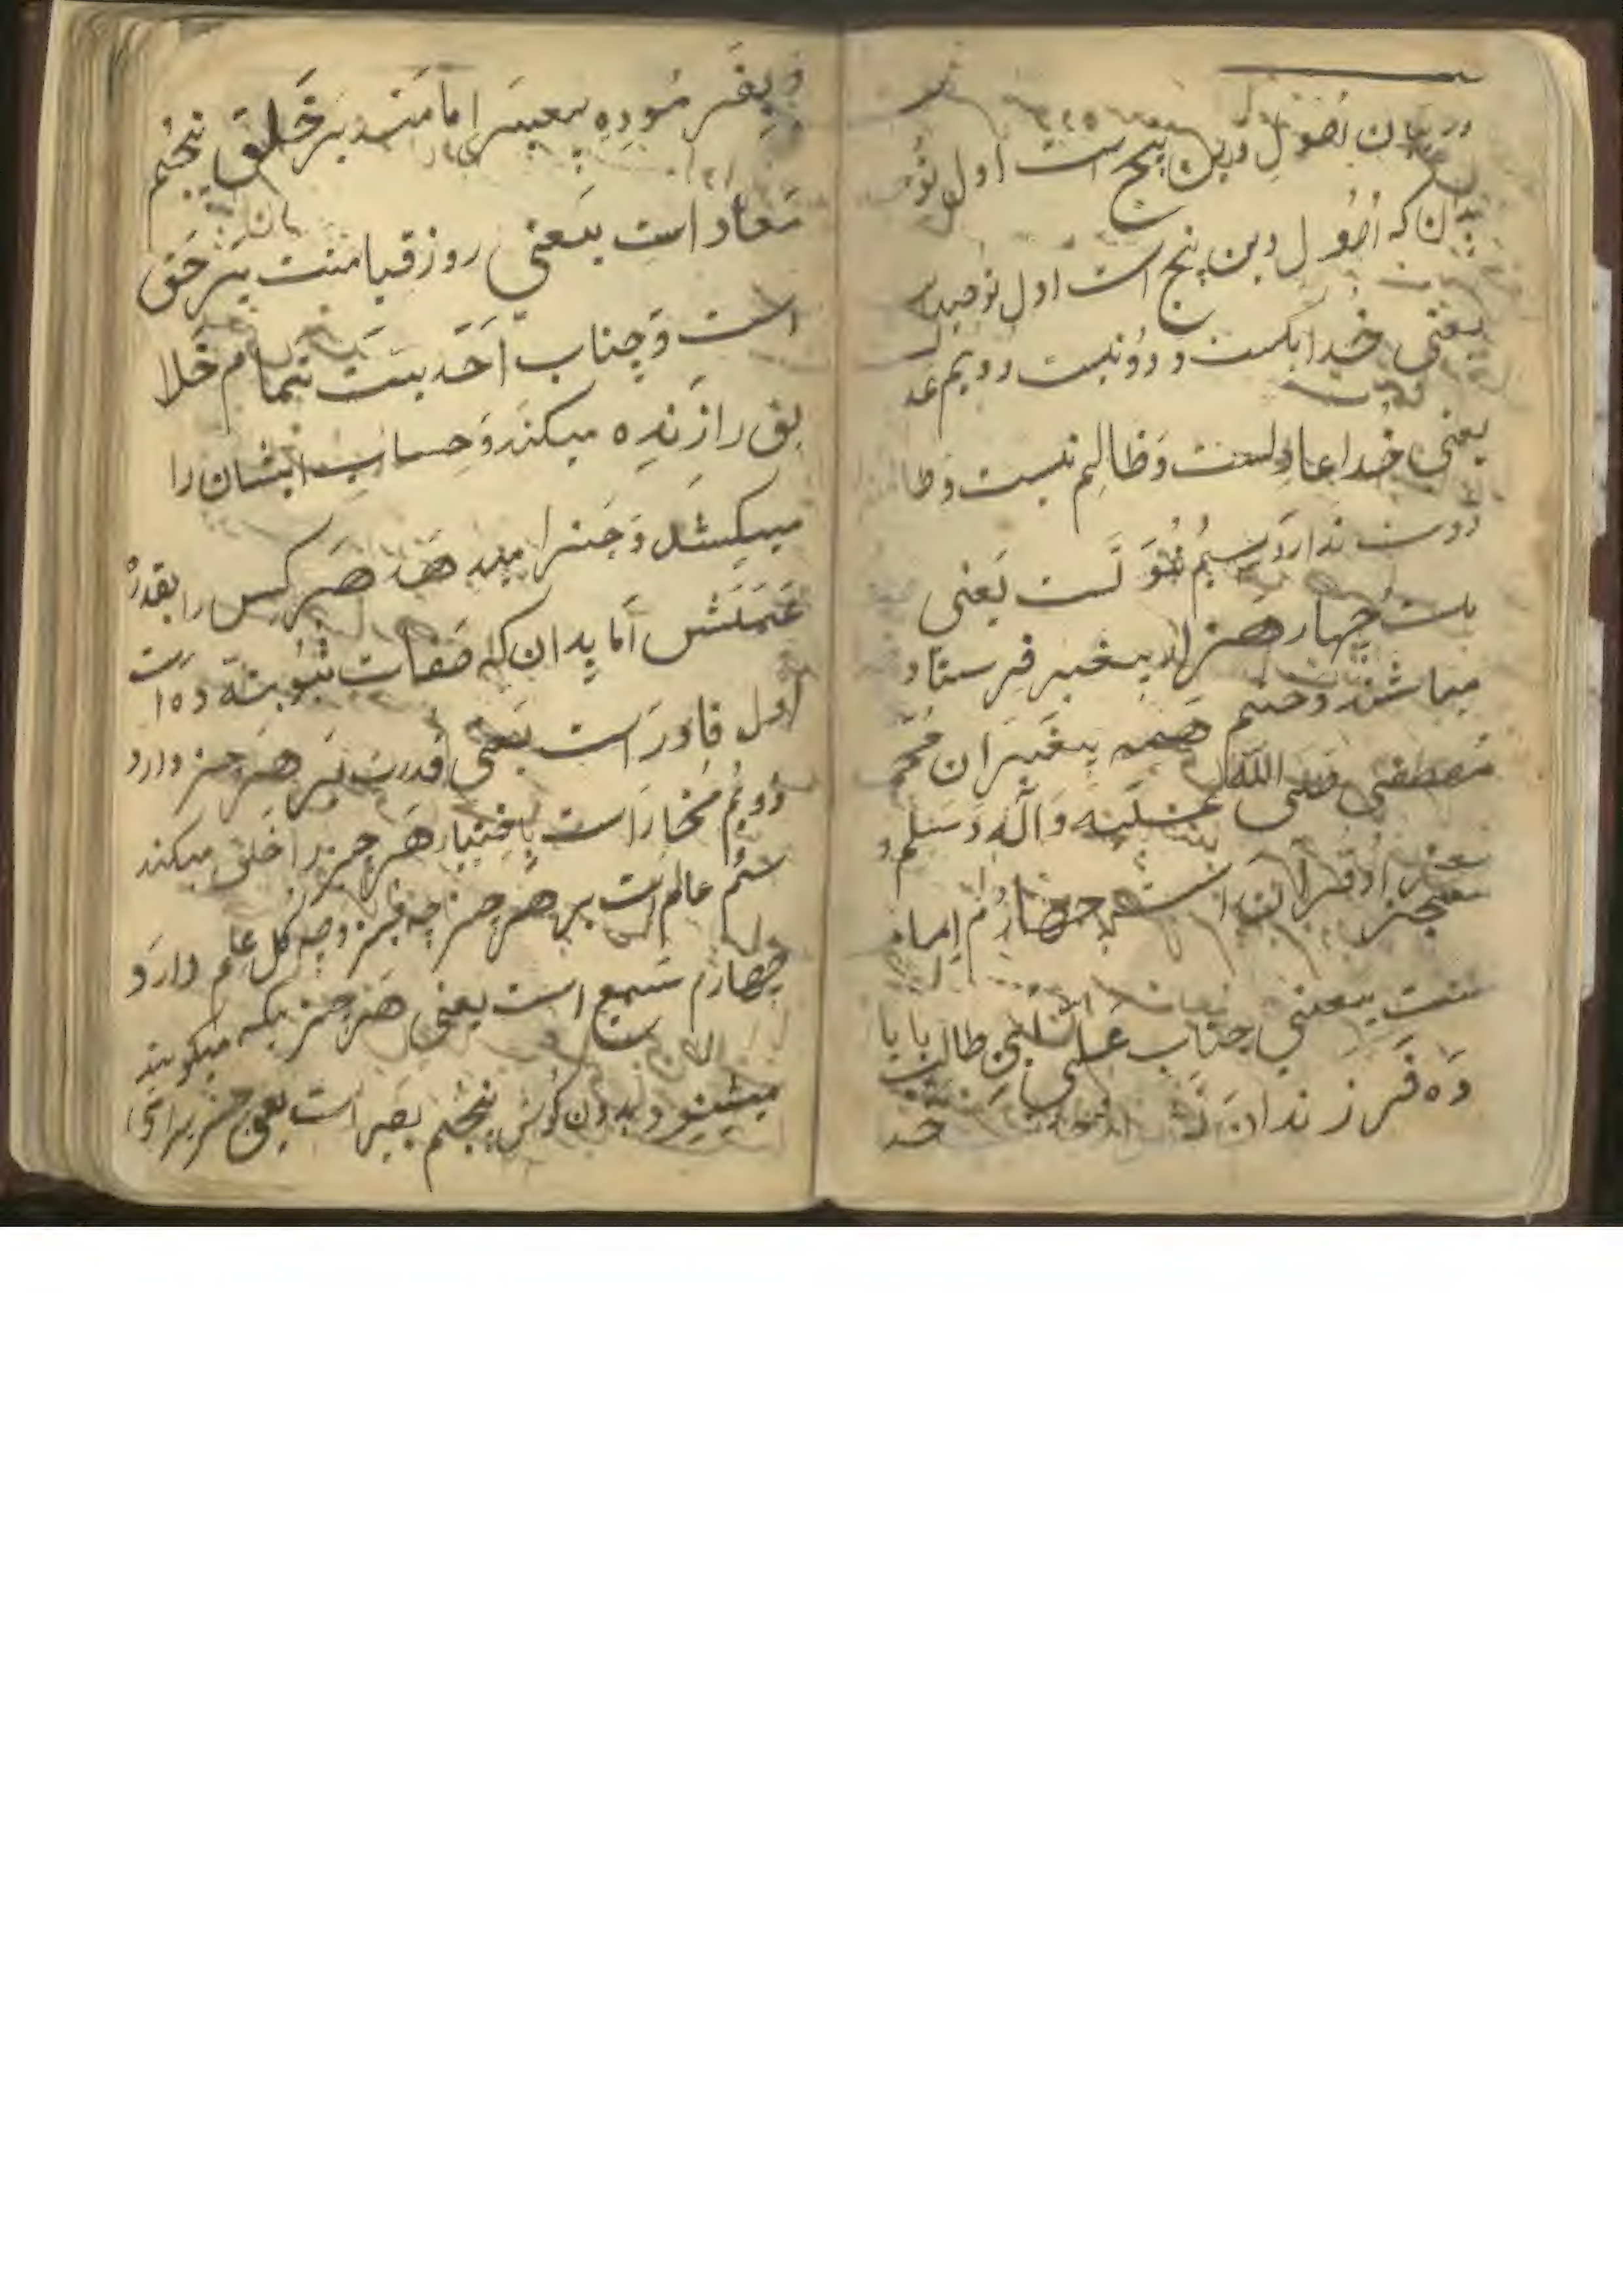 در بیان اصول دین پنج است اول تو
بدان که اصول دین پنج است اول توحید
یعنی خدا یکست و دو نیست دویم عد
یعنی خدا عادلست و ظالم نیست و ظا
دوست ندارد سیم نبوّتست یعنی
بیست چهار هزار پیغمبر فرستاد
میباشند و ختم همه پیغمبران محمد
مصطفی صلی الله علیه و آله و سلم و
معجز او قرآن است چهارم اما
متست یعنی جناب علی ابن ابی طالب با یا
ده فرزندانش
و بفرموده پیغمبر امامند بر خلق پنجم
معاد است یعنی روز قیامت بر حق
است و جناب احدیت تمام خلا
یق را زنده میکند و حساب ایشان را
میکشد و جزا میدهد هر کس را بقدر
عملش اما بدان که صفات ثبوتیه ده است
اول قادر است یعنی قدرت بر هر چیز دارد
دویم مختار است باختیار هر چیز را خلق میکند
سیم عالم است بر هر چیز چه جز و چه کل علم دارد
چهارم سمیع است یعنی هر چیزیکه میکویند
میشنود بدون کوش پنجم بصیر است یعنی